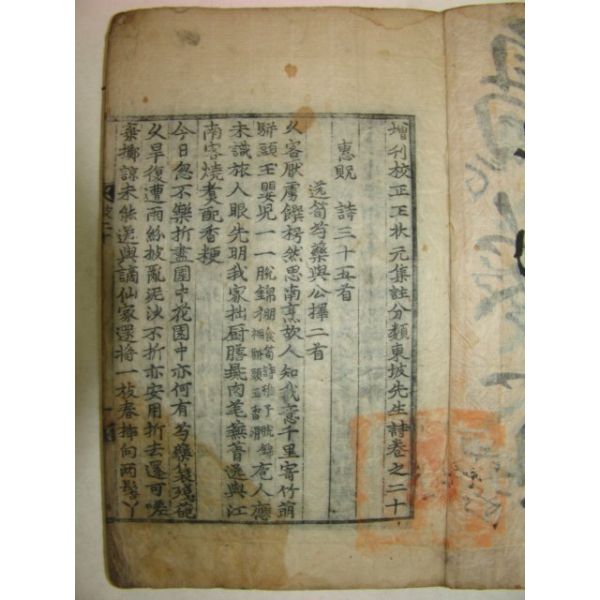 增刊校正王狀元集註分類東坡先生詩卷之二十
惠貺　詩三十五首
送筍芍藥與公擇二首
久客厭虜饌枵然思南烹故人知我意千里寄竹萌
駢頭玉嬰兒一一脫錦棚食筍詩稚子脫錦棚駢頭玉香滑庖人應
未識旅人眼先明我家拙厨膳彘肉芼蕪菁送與江
南客燒煑配香粳
今日忽不樂折盡園中花園中亦何有芍藥裊殘葩
久旱復遭雨紛披亂泥沙不折亦安用折去還可嗟
棄擲諒未能送與謫仙家還將一枝春揷向兩髻丫